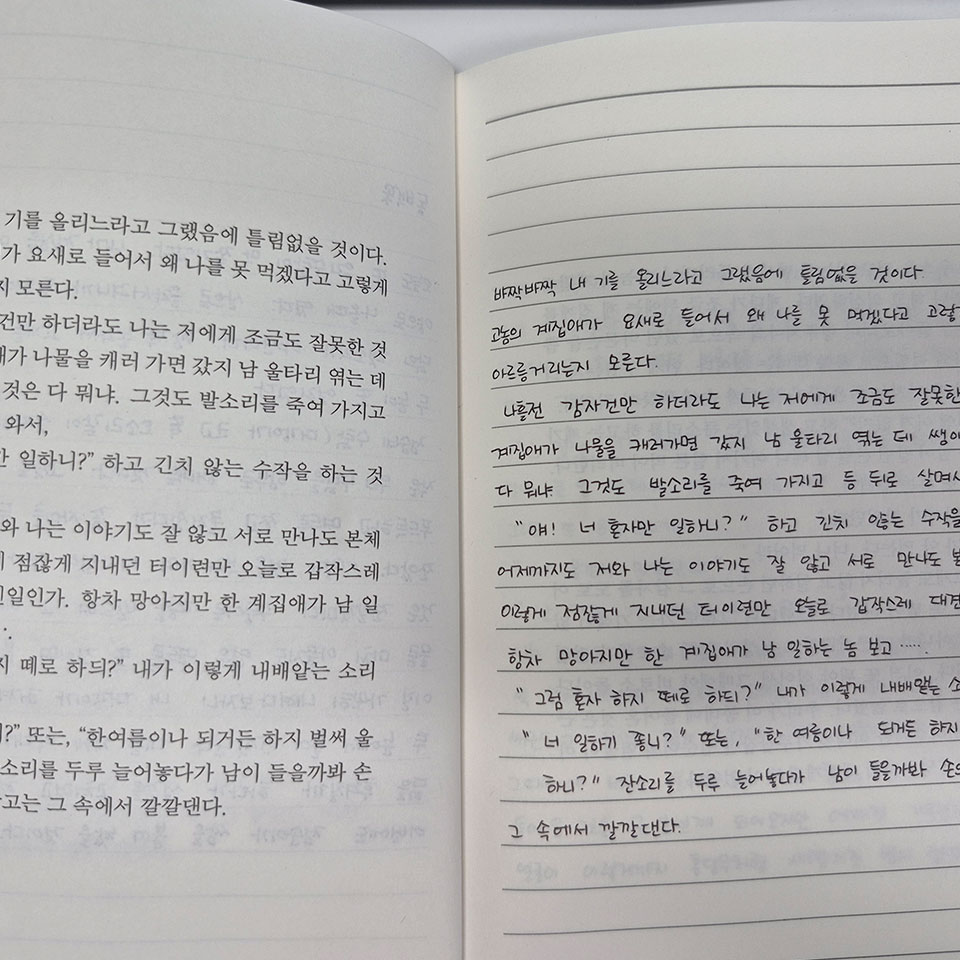 기를 올리느라고 그랬음에 틀림없을 것이다.
가 요새로 들어서 왜 나를 못 먹겠다고 고렇게
지 모른다.
건만 하더라도 나는 저에게 조금도 잘못한 것
애가 나물을 캐러 가면 갔지 남 울타리 엮는 데
것은 다 뭐냐. 그것도 발소리를 죽여 가지고
와서,
만 일하니?" 하고 긴치 않는 수작을 하는 것
와 나는 이야기도 잘 않고 서로 만나도 본체
점잖게 지내던 터이련만 오늘로 갑작스레
일인가. 항차 망아지만 한 계집애가 남 일
지 떼로 하듸?" 내가 이렇게 내배앝는 소리
?" 또는, "한여름이나 되거든 하지 벌써 울
소리를 두루 늘어놓다가 남이 들을까봐 손
고는 그 속에서 깔깔댄다.
동백꽃
바짝바짝 내 기를 올리느라고 그랬음에 틀림없을 것이다
고놈의 계집애가 요새로 들어서 왜 나를 못 먹겠다고 고렇
아르릉거리는지 모른다.
나흘전 감자건만 하더라도 나는 저에게 조금도 잘못한
계집애가 나물을 캐러가면 갔지 남 울타리 엮는 데 쌩이
다 뭐냐. 그것도 발소리를 죽여 가지고 등 뒤로 살며시
"얘! 너 혼자만 일하니?" 하고 긴치 않는 수작을
어제까지도 저와 나는 이야기도 잘 않고 서로 만나도 본
이렇게 점잖게 지내던 터이련만 오늘로 갑작스레 대견
항차 망아지만 한 계집애가 남 일하는 놈 보고 .....
"그럼 혼자 하지 떼로 하듸?" 내가 이렇게 내배앝는 소
"너 일하기 좋니?" 또는, "한 여름이나 되거든 하지
하니?" 잔소리를 두루 늘어놓다가 남이 들을까봐 손으
그 속에서 깔깔댄다.